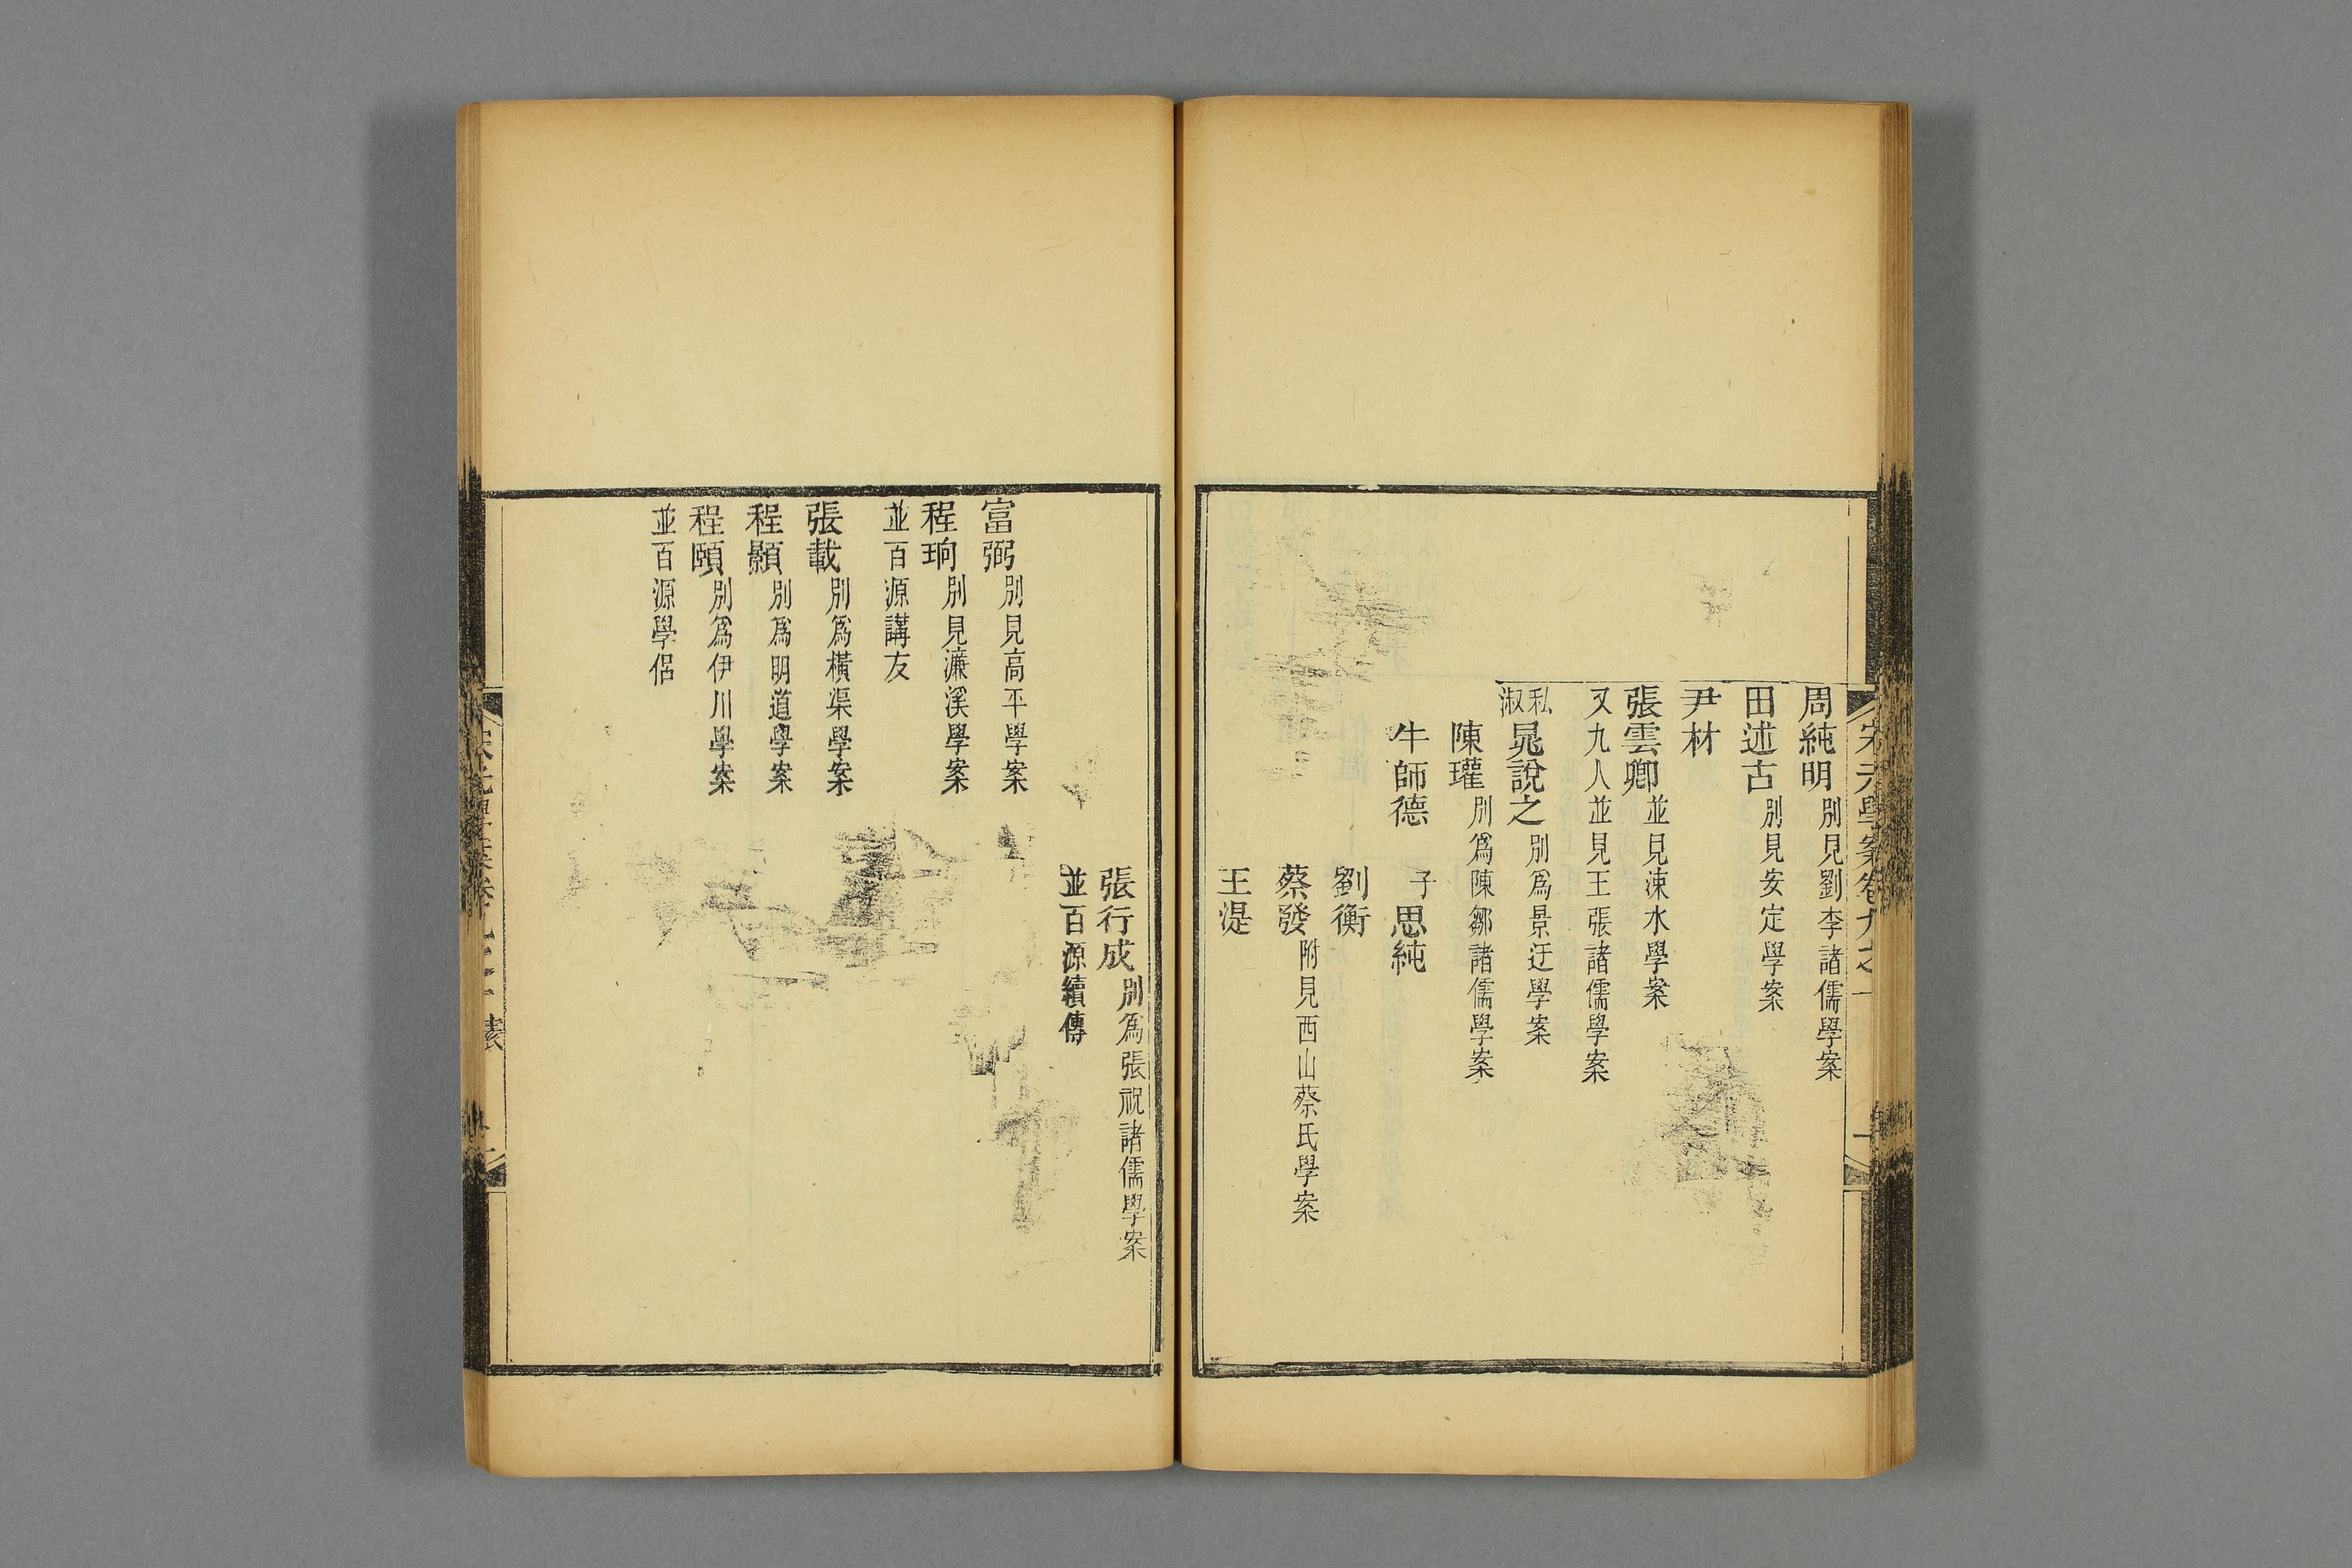 周純明別見劉李諸儒學案
田述古別見安定學案
尹材
張雲卿並見涑水學案
又九人並見王張諸儒學案
私淑晁說之別爲景迂學案
陳瓘別爲陳鄒諸儒學案
牛師德 子思純
劉衡
蔡發附見西山蔡氏學案
王湜
張行成別爲張祝諸儒學案
並百源續傳
富弼別見高平學案
程珦別見濂溪學案
並百源講友
張載別爲橫渠學案
程顥別爲明道學案
程頤別爲伊川學案
並百源學侶
宋元學案卷九之